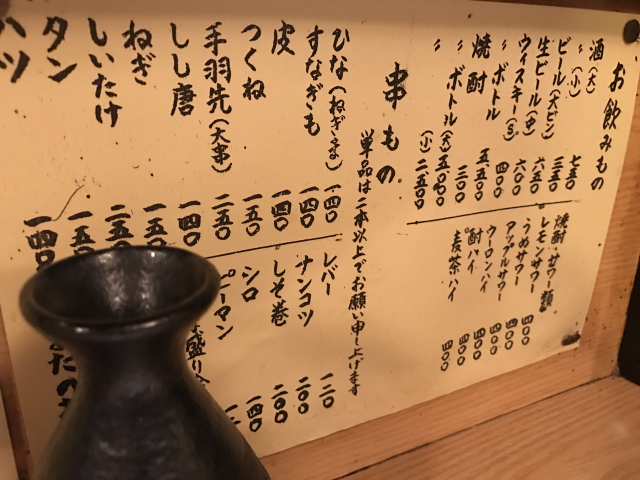 お飲みもの
酒(大) 七五〇
〃(小) 三五〇
ビール(大ビン) 六五〇
生ビール(中) 六〇〇
ウィスキー(S) 四〇〇
〃ボトル 五、五〇〇
焼酎 三〇〇
〃ボトル(大) 五、〇〇〇
〃(小) 二、五〇〇
焼酎・サワー類
レモンサワー 四〇〇
うめサワー 四〇〇
アップルサワー 四〇〇
ウーロンハイ 四〇〇
酎ハイ 四〇〇
麦茶ハイ 四〇〇
串もの
単品は二本以上でお願い申し上げます
ひな(ねぎま) 一四〇
すなぎも 一四〇
皮 一四〇
つくね 一五〇
手羽先(大串) 二五〇
しし唐 一四〇
ねぎ 一五〇
しいたけ 二五〇
タン 一五〇
ハツ 一四〇
レバー 一二〇
ナンコツ 二〇〇
しそ巻 二〇〇
シロ 一四〇
ピーマン
盛り